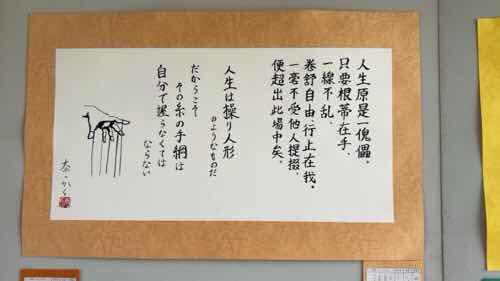 人生原是一傀儡、
只要根蒂在手、
一線不乱、
巻舒自由、行止在我。
一毫不受他人捉掇、
便超出此場中矣。
人生は操り人形
のようなものだ
だからこそ
その糸の手綱は
自分で握らなくては
ならない